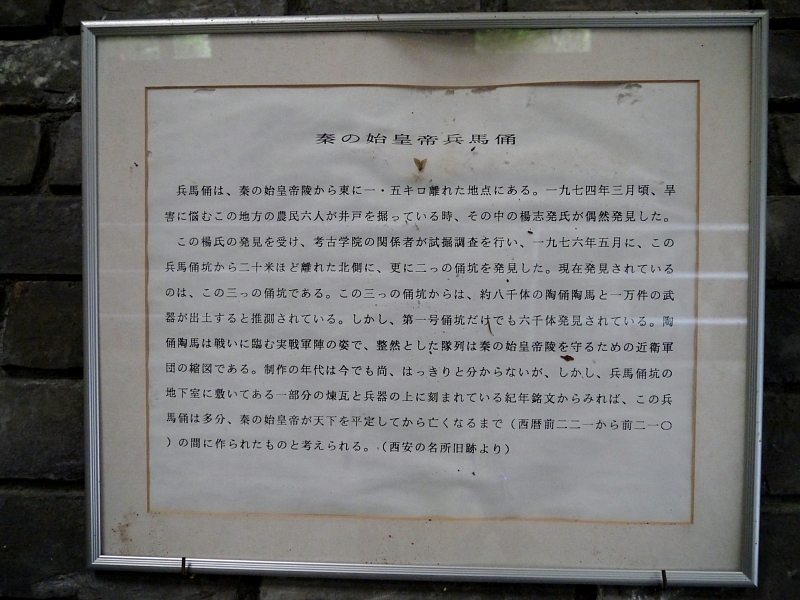 秦の始皇帝兵馬俑
兵馬俑は、秦の始皇帝陵から東に一・五キロ離れた地点にある。一九七四年三月頃、旱
害に悩むこの地方の農民六人が井戸を掘っている時、その中の楊志発氏が偶然発見した。
この楊氏の発見を受け、考古学院の関係者が試掘調査を行い、一九七六年五月に、この
兵馬俑坑から二十米ほど離れた北側に、更に二っの俑坑を発見した。現在発見されている
のは、この三っの俑坑である。この三っの俑坑からは、約八千体の陶俑陶馬と一万件の武
器が出土すると推測されている。しかし、第一号俑坑だけでも六千体発見されている。陶
俑陶馬は戦いに臨む実戦軍陣の姿で、整然とした隊列は秦の始皇帝陵を守るための近衛軍
団の縮図である。制作の年代は今でも尚、はっきりと分からないが、しかし、兵馬俑坑の
地下室に敷いてある一部分の煉瓦と兵器の上に刻まれている紀年銘文からみれば、この兵
馬俑は多分、秦の始皇帝が天下を平定してから亡くなるまで（西暦前二二一から前二一〇
）の間に作られたものと考えられる。（西安の名所旧跡より）